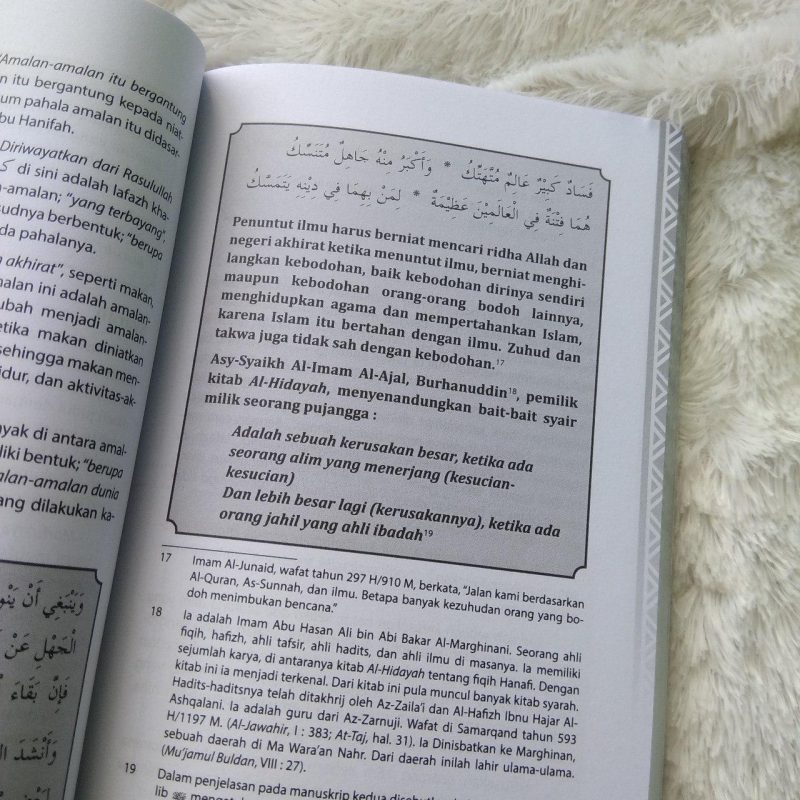 "Amalan-amalan itu bergantung
n itu bergantung kepada niat-
um pahala amalan itu didasar-
bu Hanifah.
Diriwayatkan dari Rasulullah
di sini adalah lafazh kha-
-amalan; "yang terbayang",
sudnya berbentuk; "berupa
da pahalanya.
akhirat", seperti makan,
alan ini adalah amalan-
ubah menjadi amalan-
etika makan diniatkan
sehingga makan men-
idur, dan aktivitas-ak-
nyak di antara amal-
liki bentuk; "berupa
alan-amalan dunia
ang dilakukan ka-
وَيَنْبَغِي أَنْ يَنْو
الْجَهْلِ عَنْ
فَإِنَّ بَقَاءَ
وَأَنْشَدَ ال
فَسَادٌ كَبِيْرٌ عَالِمٌ مُتَهَتِّكُ * وَأَكْبَرُ مِنْهُ جَاهِلٌ مُتَنَسِّكُ
هُمَا فِتْنَةٌ فِي الْعَالَمِيْنَ عَظِيْمَةٌ * لِمَنْ بِهِمَا فِي دِيْنِهِ يَتَمَسَّكُ
Penuntut ilmu harus berniat mencari ridha Allah dan
negeri akhirat ketika menuntut ilmu, berniat menghi-
langkan kebodohan, baik kebodohan dirinya sendiri
maupun kebodohan orang-orang bodoh lainnya,
menghidupkan agama dan mempertahankan Islam,
karena Islam itu bertahan dengan ilmu. Zuhud dan
takwa juga tidak sah dengan kebodohan.17
Asy-Syaikh Al-Imam Al-Ajal, Burhanuddin18, pemilik
kitab Al-Hidayah, menyenandungkan bait-bait syair
milik seorang pujangga :
Adalah sebuah kerusakan besar, ketika ada
seorang alim yang menerjang (kesucian-
kesucian)
Dan lebih besar lagi (kerusakannya), ketika ada
orang jahil yang ahli ibadah19
17 Imam Al-Junaid, wafat tahun 297 H/910 M, berkata, "Jalan kami berdasarkan
Al-Quran, As-Sunnah, dan ilmu. Betapa banyak kezuhudan orang yang bo-
doh menimbukan bencana."
18 Ia adalah Imam Abu Hasan Ali bin Abi Bakar Al-Marghinani. Seorang ahli
fiqih, hafizh, ahli tafsir, ahli hadits, dan ahli ilmu di masanya. Ia memiliki
sejumlah karya, di antaranya kitab Al-Hidayah tentang fiqih Hanafi. Dengan
kitab ini ia menjadi terkenal. Dari kitab ini pula muncul banyak kitab syarah.
Hadits-haditsnya telah ditakhrij oleh Az-Zaila'i dan Al-Hafizh Ibnu Hajar Al-
Ashqalani. Ia adalah guru dari Az-Zarnuji. Wafat di Samarqand tahun 593
H/1197 M. (Al-Jawahir, I : 383; At-Taj, hal. 31). Ia Dinisbatkan ke Marghinan,
sebuah daerah di Ma Wara'an Nahr. Dari daerah inilah lahir ulama-ulama.
(Mu'jamul Buldan, VIII : 27).
19 Dalam penjelasan pada manuskrip kedua
lib ﷺ